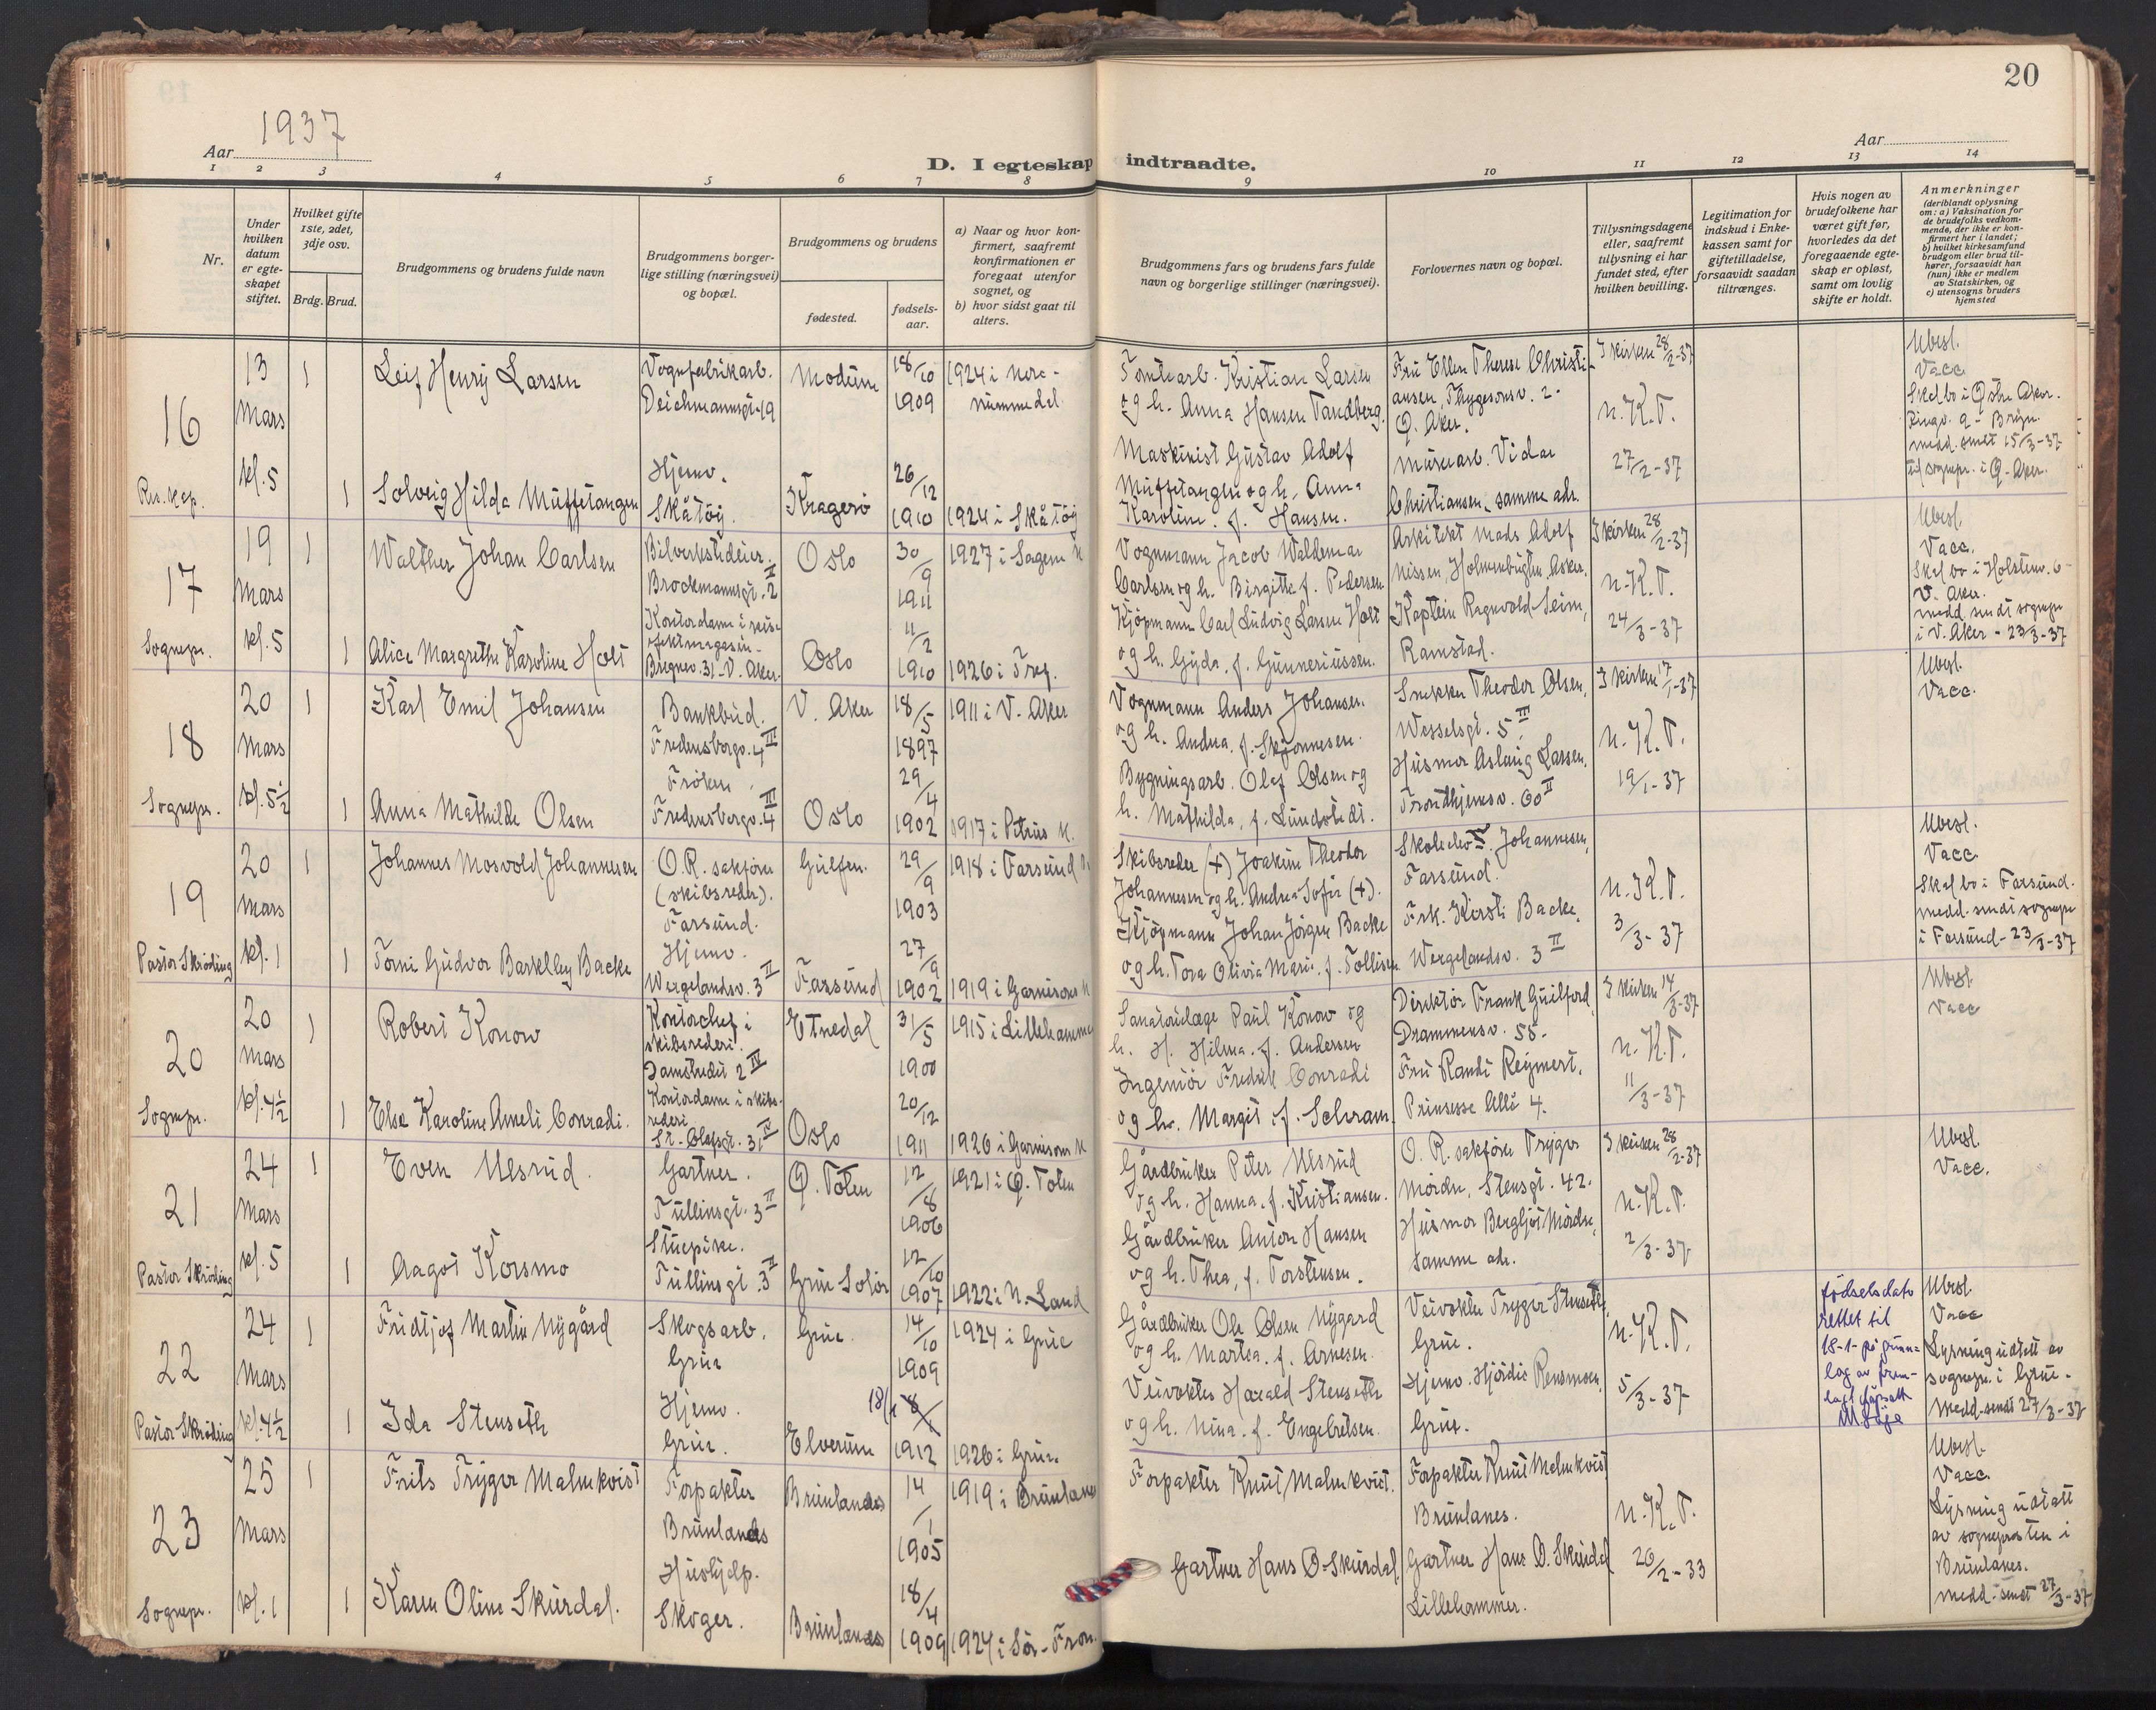 20
1937
Aar
Aar
D. I egteskap indtraadte.
1 2 3 4 5 6 7 8 9 10 11 12 13 14
Nr.
Under hvilken datum er egteskapet stiftet.
Hvilket gifte 1ste, 2det, 3dje osv.
Brdg. Brud.
Brudgommens og brudens fulde navn
Brudgommens borgerlige stilling (næringsvei) og bopæl.
Brudgommens og brudens
fødested.
fødselsaar.
a) Naar og hvor konfirmert, saafremt konfirmationen er foregaat utenfor sognet, og
b) hvor sidst gaat til alters.
Brudgommens fars og brudens fars fulde navn og borgerlige stillinger (næringsvei).
Forlovernes navn og bopæl.
Tillysningsdagene eller, saafremt tillysning ei har fundet sted, efter hvilken bevilling.
Legitimation for indskud i Enkekassen samt for giftetilladelse, forsaavidt saadan tiltrænges.
Hvis nogen av brudefolkene har været gift før, hvorledes da det foregaaende egteskap er opløst, samt om lovlig skifte er holdt.
Anmerkninger
(deriblandt oplysning om: a) Vaksination for de brudefolks vedkommende, der ikke er konfirmert her i landet;
b) hvilket kirkesamfund brudgom eller brud tilhører, forsaavidt han (hun) ikke er medlem av Statskirken, og
c) utensogns bruders hjemsted
16
Res. kap.
13 Mars kl. 5
1
Leif Henry Larsen
Vognfabrikarb.
Deichmannsgt. 19
Modum
18/10 1909
1924 i Nore-
nummedal
Tomtearb. Kristian Larsen
og h. Anna Hansen Tandberg.
Fru Ellen Therese Christi-
ansen, Thygesonsv. 2-
Ø. Aker.
I kirken 28/2-37
N.K.T.
27/2-37
Ubesl.
Vacc.
Skal bo i Østre Aker.
medd. sendt 15/3-37
til sognepr. i Ø-Aker.
1
Solveig Hilda Muffetangen
Hjemv.
Skåtøy.
Kragerø
26/12 1910
1924 i Skåtøy
Maskinist Gustav Adolf
Muffetangen og h. Anna
Karoline. f. Hansen.
Murerarb. Vidar
Christiansen, samme adr.
17
Sognepr.
19 Mars kl. 5
1
Walther Johan Carlsen
Bilverkstedeier.
Brockmannsgt. 2 II
Oslo
30/9 1911
1927 i Sagene K
Vognmann Jacob Waldemar
Carlsen og h. Birgitte f. Pedersen
Arkitekt Mads Adolf
Nissen, Holmenbugten, Asker.
I kirken 28/2-37
N.K.T.
24/3-37
Ubesl.
Vacc.
Skal bo i Holstenv. 6-
V. Aker.
medd. sendt sognepr.
i V. Aker - 23/3-37
1
Alice Margrethe Karoline Holt
Kontordame i reise-
effektmagasin-
Bregnev. 31-V. Aker.
Oslo
11/2 1910
1926 i Tref.
Kjøpmann Carl Ludvig Larsen Holt
og h. Gyda. f. Gunneriussen.
Kaptein Ragnvald Seim,
Ramstad.
18
Sognepr.
20 Mars kl. 5½
1
Karl Emil Johansen
Bankbud.
Fredensborgv. 4 III
V. Aker
18/5 1897
1911 i V. Aker
Vognmann Anders Johansen.
og h. Andrea. f. Skjønnesen.
Snekker Theodor Olsen,
Wesselsgt. 5 III
I kirken 17/1-37
N.K.T.
19/1-37
Ubesl.
Vacc.
1
Anna Mathilde Olsen
Frøken
Fredensborgv. 4 III
Oslo
29/4 1902
1917 i Petrus K.
Bygningsarb. Olaf Olsen og
h. Mathilda, f. Lundstedt.
Husmor Aslaug Larsen.
Trondhjemsv. 60 II
19
Pastor Skrøding
20 Mars kl. 1
1
Johannes Mosvold Johannesen
O.R. sakfører
(skibsreder).
Farsund.
29/9 1903
1918 i Farsund
Skibsreder (+) Joakim Theodor
Johannesen og h. Andrea Sofie (+).
Johannesen,
Farsund.
N.K.T.
3/3-37
Ubesl.
Vacc
Skal bo i Farsund.
medd. sendt sognepr
i Farsund - 23/3-37
1
Torni Gudvor Barkelley Backe
Hjemv.
Wergelandsv. 3 II
Farsund
27/9 1902
1919 i Garnisons K
Kjøpmann Johan Jørgen Backe
og h. Tora Olivia Marie. f. Tollisen
Frk. Kirsti Backe,
Wergelandsv. 3 II
20
Sognepr.
20 Mars kl. 4½
1
Robert Konow
Kontorchef i
skibsrederi.
Damstredet 2 IV
Etnedal
31/5 1900
1915 i Lillehammer
Sanatorielæge Paul Konow og
h. H. Hilma. f. Andersen
Direktør Frank Guilford,
Drammensv. 55-
I kirken 14/3-37
N.K.T.
11/3-37
Ubesl.
Vacc
1
Else Karoline Ameli Conradi.
Kontordame i skibs-
rederi
St. Olafsgt. 31 IV
Oslo
20/12 1911
1926 i Garnisons K
Ingeniør Fredrik Conradi
og h. Margit. f. Schram.
Fru Randi Reymert,
Prinsesse Allé 4.
21
Pastor Skrøding
24 Mars kl. 5
1
Even Ulsrud.
Gartner.
Tullinsgt. 3 II
Ø. Toten
12/8 1906
1921 i Ø. Toten
Gårdbruker Peter Ulsrud
og h. Hanna. f. Kristiansen.
O.R. sakfører Trygve
Mørdre, Stensgt. 42.
I kirken 28/2-37
N.K.T.
2/3-37
Ubesl.
Vacc.
1
Aagot Korsmo
Stuepike.
Tullinsgt. 3 II
Grue Solør
12/10 1907
1922 i N. Land
Gårdbruker Anton Hansen
og h. Thea, f. Torstensen.
Husmor Bergljot Mørdre,
samme adr.
22
Pastor Skrøding
24 Mars kl. 4½
1
Fridtjof Martin Nygård
Skogsarb.
Grue
Grue.
14/10 1909
1924 i Grue
Gårdbruker Ole Olsen Nygård
og h. Martea. f. Arnesen.
Veivokter Trygve Stenseth,
Grue.
N.K.T.
5/3-37
fødselsdato
rettet til
18-1- på grunn-
lag av frem-
lagt dåpsatt.
Ubesl.
Vacc
Lysning udtatt av
sognepr. i Grue.
Medd. sendt 27/3-37
1
Ida Stenseth
Hjemv.
Grue.
Elverum
18/1 8/1 1912
1926 i Grue.
Veivokter Harald Stenseth
og h. Nina. f. Engebretsen.
Hjemv. Hjørdis Rensmoen,
Grue.
23
Sognepr.
25 Mars kl. 1
1
Frits Trygve Malmkvist
Forpakter
Brunlanes
Brunlanes
14/1 1905
1919 i Brunlanes
Forpakter Knut Malmkvist.
Forpakter Knut Malmkvist
Brunlanes.
N.K.T.
20/2-33
Ubesl.
Vacc.
Lysning udtatt
av sognepresten i
Brunlanes.
medd. sendt 27/3-37
1
Karen Oline Skurdal.
Hushjelp.
Skoger.
Brunlanes
18/4 1909
1924 i Sør-Fron.
Gartner Hans O. Skurdal,
Gartner Hans O. Skurdal
Lillehammer.